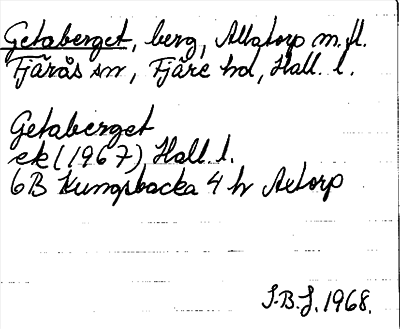 Getaberget, berg, Allatorp m.fl.
Fjärås sn, Fjäre hd, Hall. l.
Getaberget
ek (1967) Hall. l.
6B Kungsbacka 4 h Axtorp
S.B.J. 1968.